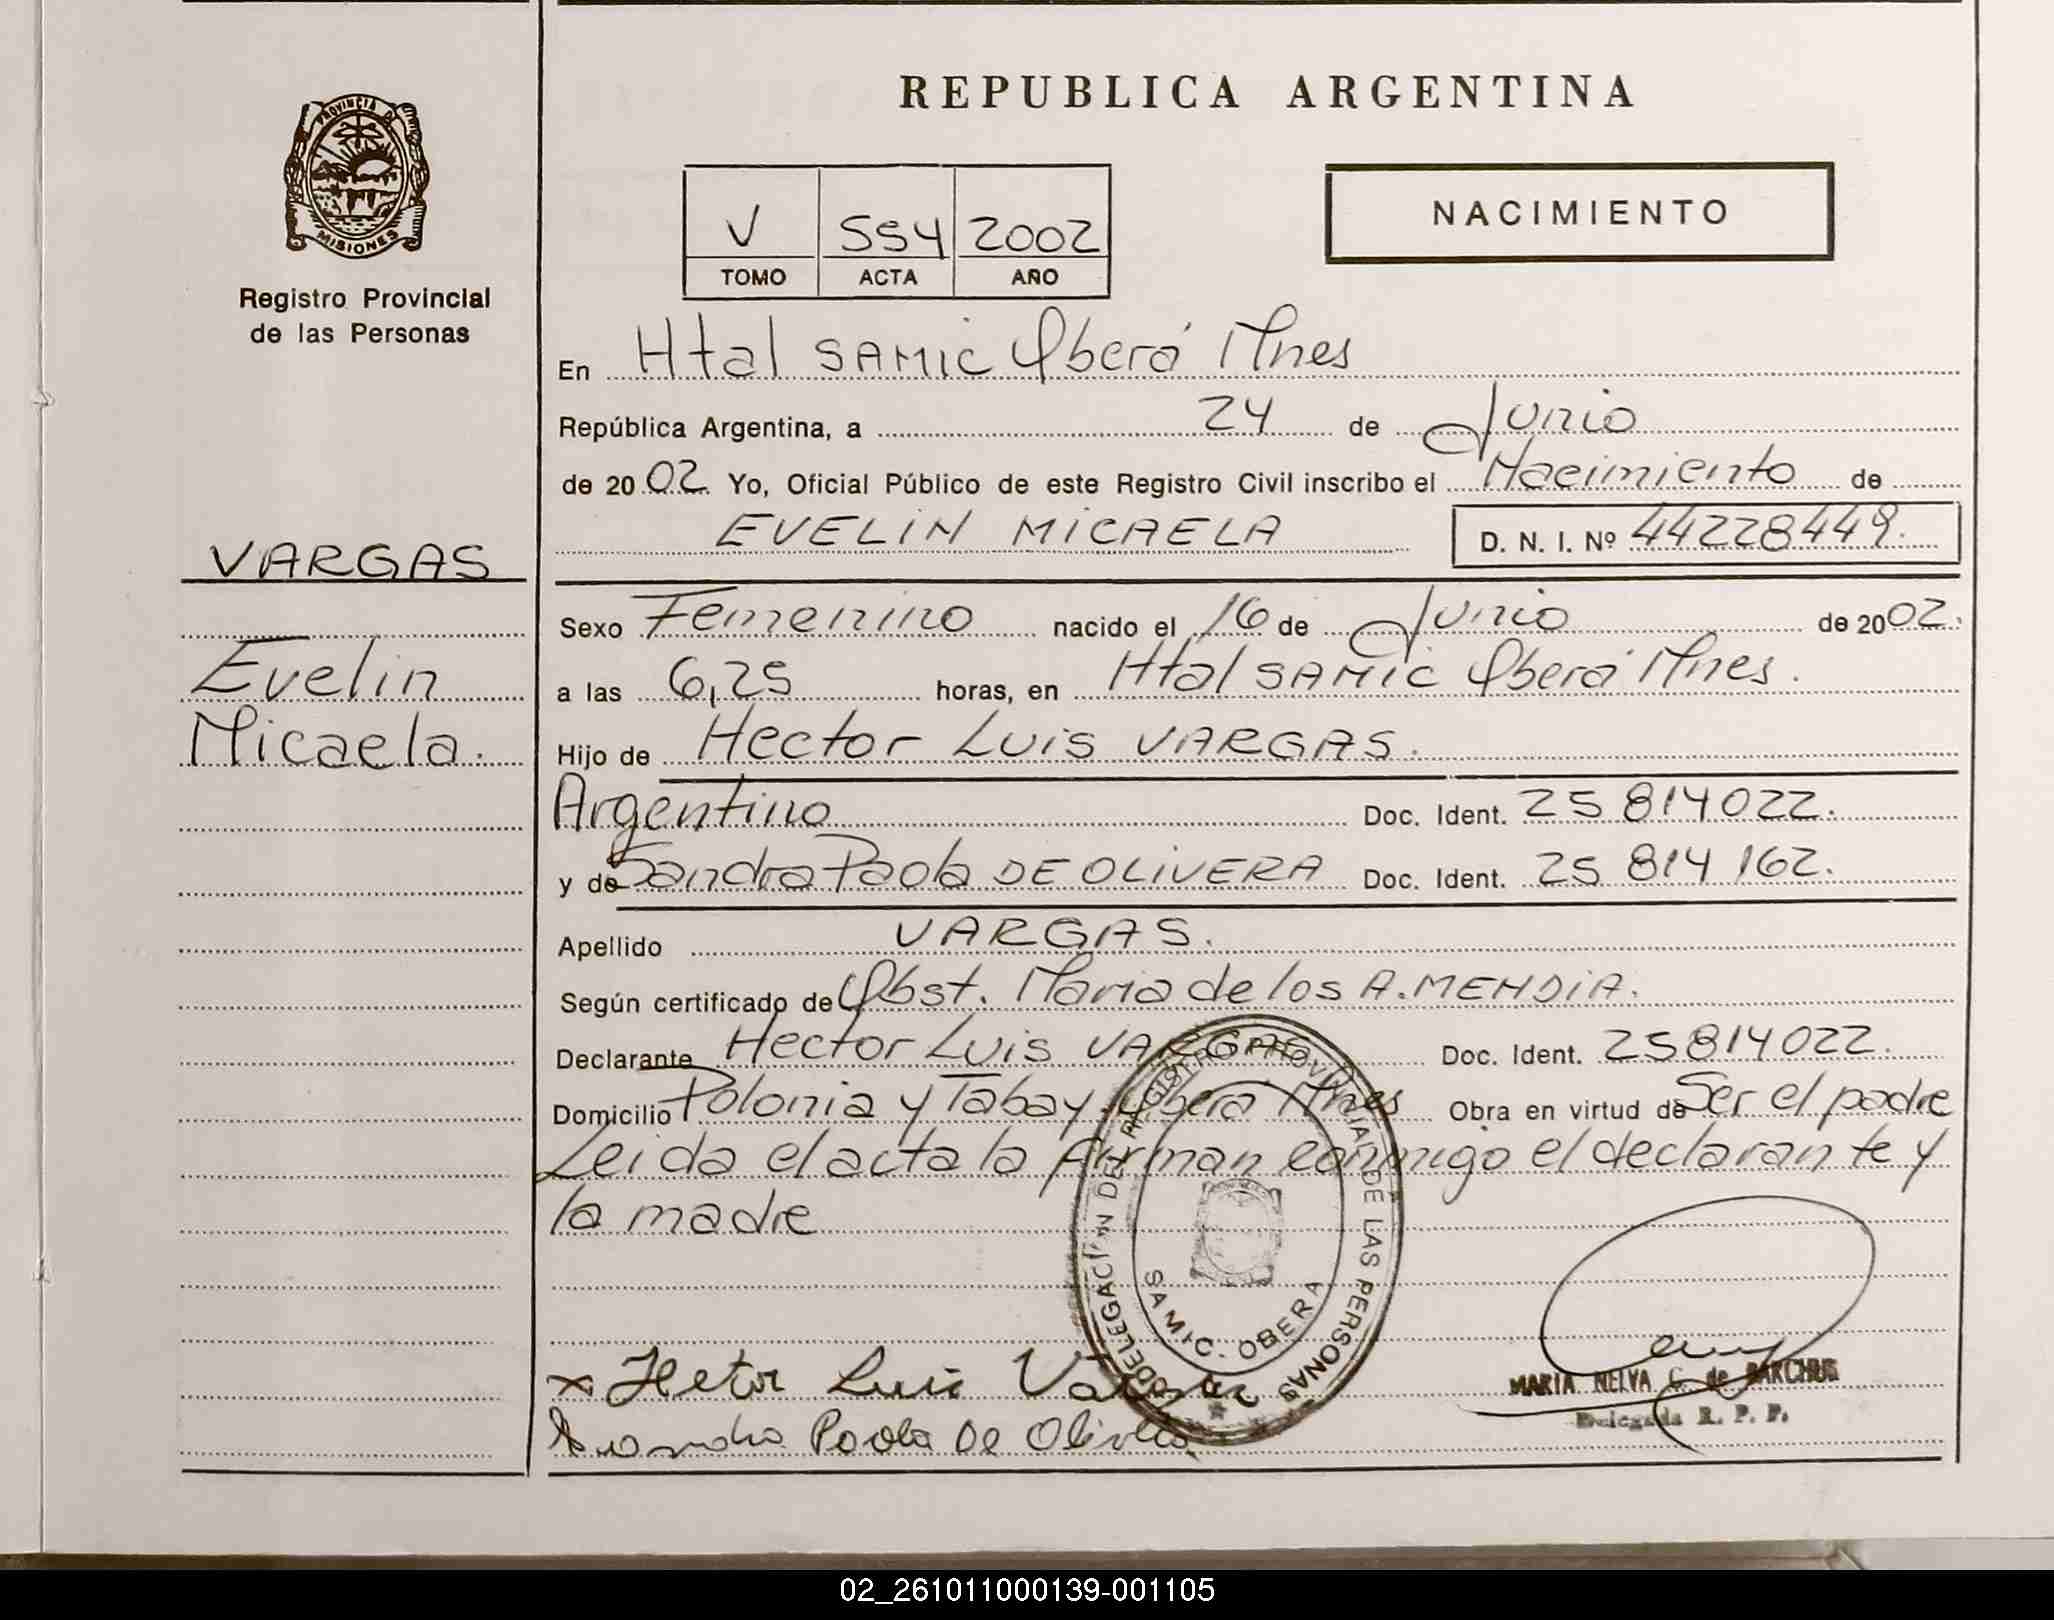 REPUBLICA ARGENTINA
PROVINCIA DE
MISIONES
Registro Provincial
de las Personas
V SS4 2002
TOMO ACTA AÑO
NACIMIENTO
En Htal SAMIC Oberá Mnes
República Argentina, a 24 de Junio
de 2002 Yo, Oficial Público de este Registro Civil inscribo el Nacimiento de
EVELIN MICAELA D. N. I. Nº 44228449.
VARGAS
Evelin
Micaela.
Sexo Femenino nacido el 16 de Junio de 2002.
a las 6,25 horas, en Htal SAMIC Oberá Mnes.
Hijo de Hector Luis VARGAS.
Argentino Doc. Ident. 25 814022.
y de Sandra Paola DE OLIVERA Doc. Ident. 25 814 162.
Apellido VARGAS.
Según certificado de Obst. Maria de los A. MENDIA.
Declarante Hector Luis VARGAS. Doc. Ident. 25814022.
Domicilio Polonia y Tabay. Oberá Mnes Obra en virtud de Ser el padre
Leida el acta la firman conmigo el declarante y
la madre
REGISTRO PROVINCIAL DE LAS PERSONAS
SAMIC. OBERA
x Hetor Luis Vargas
Sandra Paola De Olivera
MARIA NELVA C. de BARCHUS
Delegada R. P. P.
02_261011000139-001105